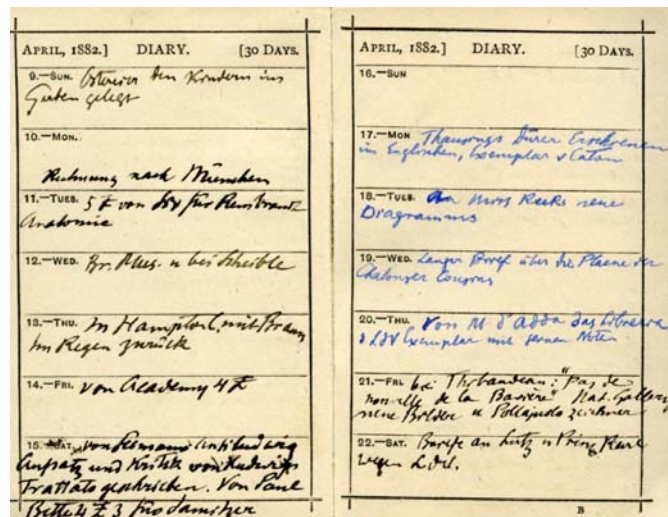 APRIL, 1882.] DIARY. [30 DAYS.
9.—SUN. Ostereier den Kindern ins
Garten gelegt
10.—MON.
Rechnung nach München
11.—TUES. 5 £ von für Rembrandt
Anatomie
12.—WED. Br. Mus. u bei Scheible
13.—THU. In Hampton C. mit Braun
Im Regen zurück
14.—FRI. von Academy 4 £
15.—SAT. von
Aufsatz und Kritik von Ludwigs
Trattato geschrieben. Von Paul
Bette 4 £ 3 für Jamitzer
APRIL, 1882.] DIARY. [30 DAYS.
16.—SUN
17.—MON Thausings Dürer Erschienen
im Englischen, Exemplar v Eaton
18.—TUES. An Miss Ruths neue
Diagramms
19.—WED. Langer Brief über die Plaene der
20.—THU. Von M d'Adda das Libreria
d LdV Exemplar mit seinen Noten
21.—FRI. bei Thibaudeau: "Pas de
nouvelle de la Barière" Nat. Gallery
neue Bilder u Pollajuolo
22.—SAT. Briefe an Lutz u Prinz Karl
wegen LdV.
B